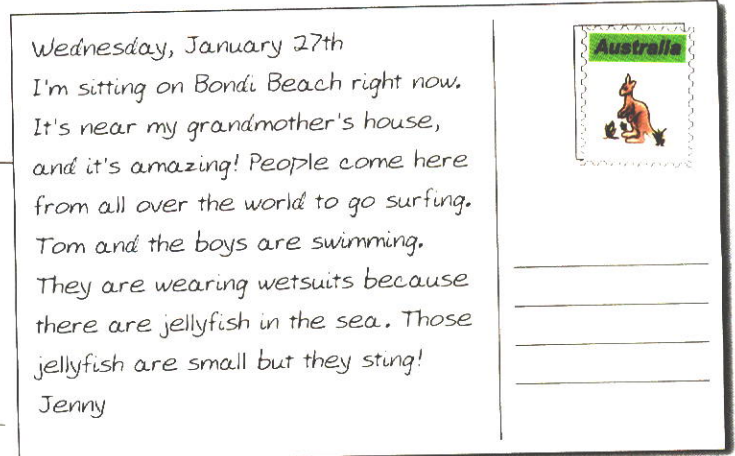 Wednesday, January 27th
I'm sitting on Bondi Beach right now.
It's near my grandmother's house,
and it's amazing! People come here
from all over the world to go surfing.
Tom and the boys are swimming.
They are wearing wetsuits because
there are jellyfish in the sea. Those
jellyfish are small but they sting!
Jenny
Australia